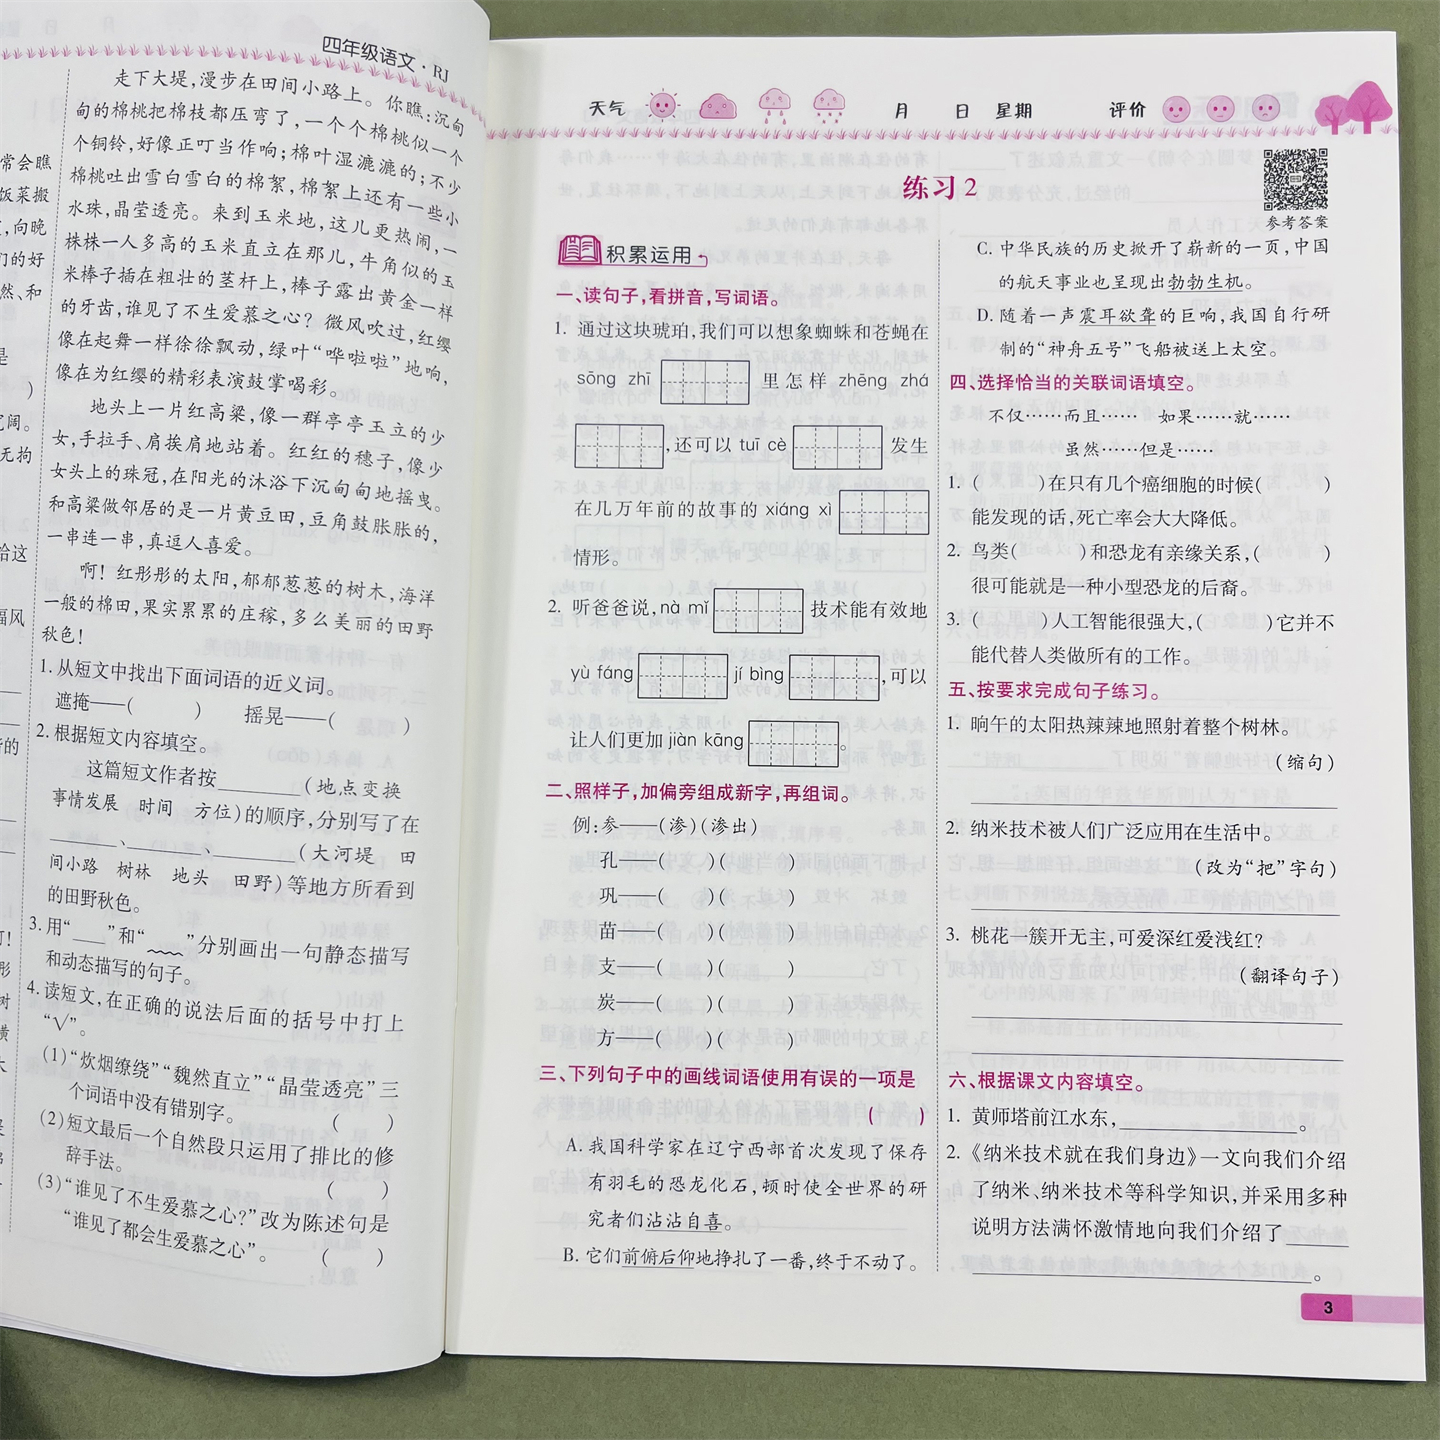 四年级语文·RJ
常会瞧
饭菜搬
,向晚
们的好
然、和
是
)
无拘
给这
走下大堤,漫步在田间小路上。你瞧:沉甸
甸的棉桃把棉枝都压弯了,一个个棉桃似一个
个铜铃,好像正叮当作响;棉叶湿漉漉的;不少
棉桃吐出雪白雪白的棉絮,棉絮上还有一些小
水珠,晶莹透亮。来到玉米地,这儿更热闹,一
株株一人多高的玉米直立在那儿,牛角似的玉
米棒子插在粗壮的茎杆上,棒子露出黄金一样
的牙齿,谁见了不生爱慕之心?微风吹过,红缨
像在起舞一样徐徐飘动,绿叶“哗啦啦”地响,
像在为红缨的精彩表演鼓掌喝彩。
地头上一片红高粱,像一群亭亭玉立的少
女,手拉手、肩挨肩地站着。红红的穗子,像少
女头上的珠冠,在阳光的沐浴下沉甸甸地摇曳。
和高粱做邻居的是一片黄豆田,豆角鼓胀胀的,
一串连一串,真逗人喜爱。
啊!红彤彤的太阳,郁郁葱葱的树木,海洋
一般的棉田,果实累累的庄稼,多么美丽的田野
秋色!
1.从短文中找出下面词语的近义词。
遮掩——(  ) 摇晃——(  )
2.根据短文内容填空。
这篇短文作者按________(地点变换
事情发展 时间 方位)的顺序,分别写了在
________、________、________(大河堤 田
间小路 树林 地头 田野)等地方所看到
的田野秋色。
3.用“___”和“﹏﹏”分别画出一句静态描写
和动态描写的句子。
4.读短文,在正确的说法后面的括号中打上
“√”。
(1)“炊烟缭绕”“魏然直立”“晶莹透亮”三
个词语中没有错别字。 (  )
(2)短文最后一个自然段只运用了排比的修
辞手法。 (  )
(3)“谁见了不生爱慕之心?”改为陈述句是
“谁见了都会生爱慕之心”。 (  )
天气 月 日 星期 评价
练习2
参考答案
积累运用
一、读句子,看拼音,写词语。
1. 通过这块琥珀,我们可以想象蜘蛛和苍蝇在
sōng zhī 里怎样 zhēng zhá
,还可以 tuī cè 发生
在几万年前的故事的 xiáng xì
情形。
2. 听爸爸说,nà mǐ 技术能有效地
yù fáng jí bìng ,可以
让人们更加 jiàn kāng 。
二、照样子,加偏旁组成新字,再组词。
例:参——(渗)(渗出)
孔——(  )(  )
巩——(  )(  )
苗——(  )(  )
支——(  )(  )
炭——(  )(  )
方——(  )(  )
三、下列句子中的画线词语使用有误的一项是
(  )
A. 我国科学家在辽宁西部首次发现了保存
有羽毛的恐龙化石,顿时使全世界的研
究者们沾沾自喜。
B. 它们前俯后仰地挣扎了一番,终于不动了。
C. 中华民族的历史掀开了崭新的一页,中国
的航天事业也呈现出勃勃生机。
D. 随着一声震耳欲聋的巨响,我国自行研
制的“神舟五号”飞船被送上太空。
四、选择恰当的关联词语填空。
不仅……而且…… 如果……就……
虽然……但是……
1. (  )在只有几个癌细胞的时候(  )
能发现的话,死亡率会大大降低。
2. 鸟类(  )和恐龙有亲缘关系,(  )
很可能就是一种小型恐龙的后裔。
3. (  )人工智能很强大,(  )它并不
能代替人类做所有的工作。
五、按要求完成句子练习。
1. 晌午的太阳热辣辣地照射着整个树林。
(缩句)
2. 纳米技术被人们广泛应用在生活中。
(改为“把”字句)
3. 桃花一簇开无主,可爱深红爱浅红?
(翻译句子)
六、根据课文内容填空。
1. 黄师塔前江水东,________________。
2.《纳米技术就在我们身边》一文向我们介绍
了纳米、纳米技术等科学知识,并采用多种
说明方法满怀激情地向我们介绍了______
________________________________。
3